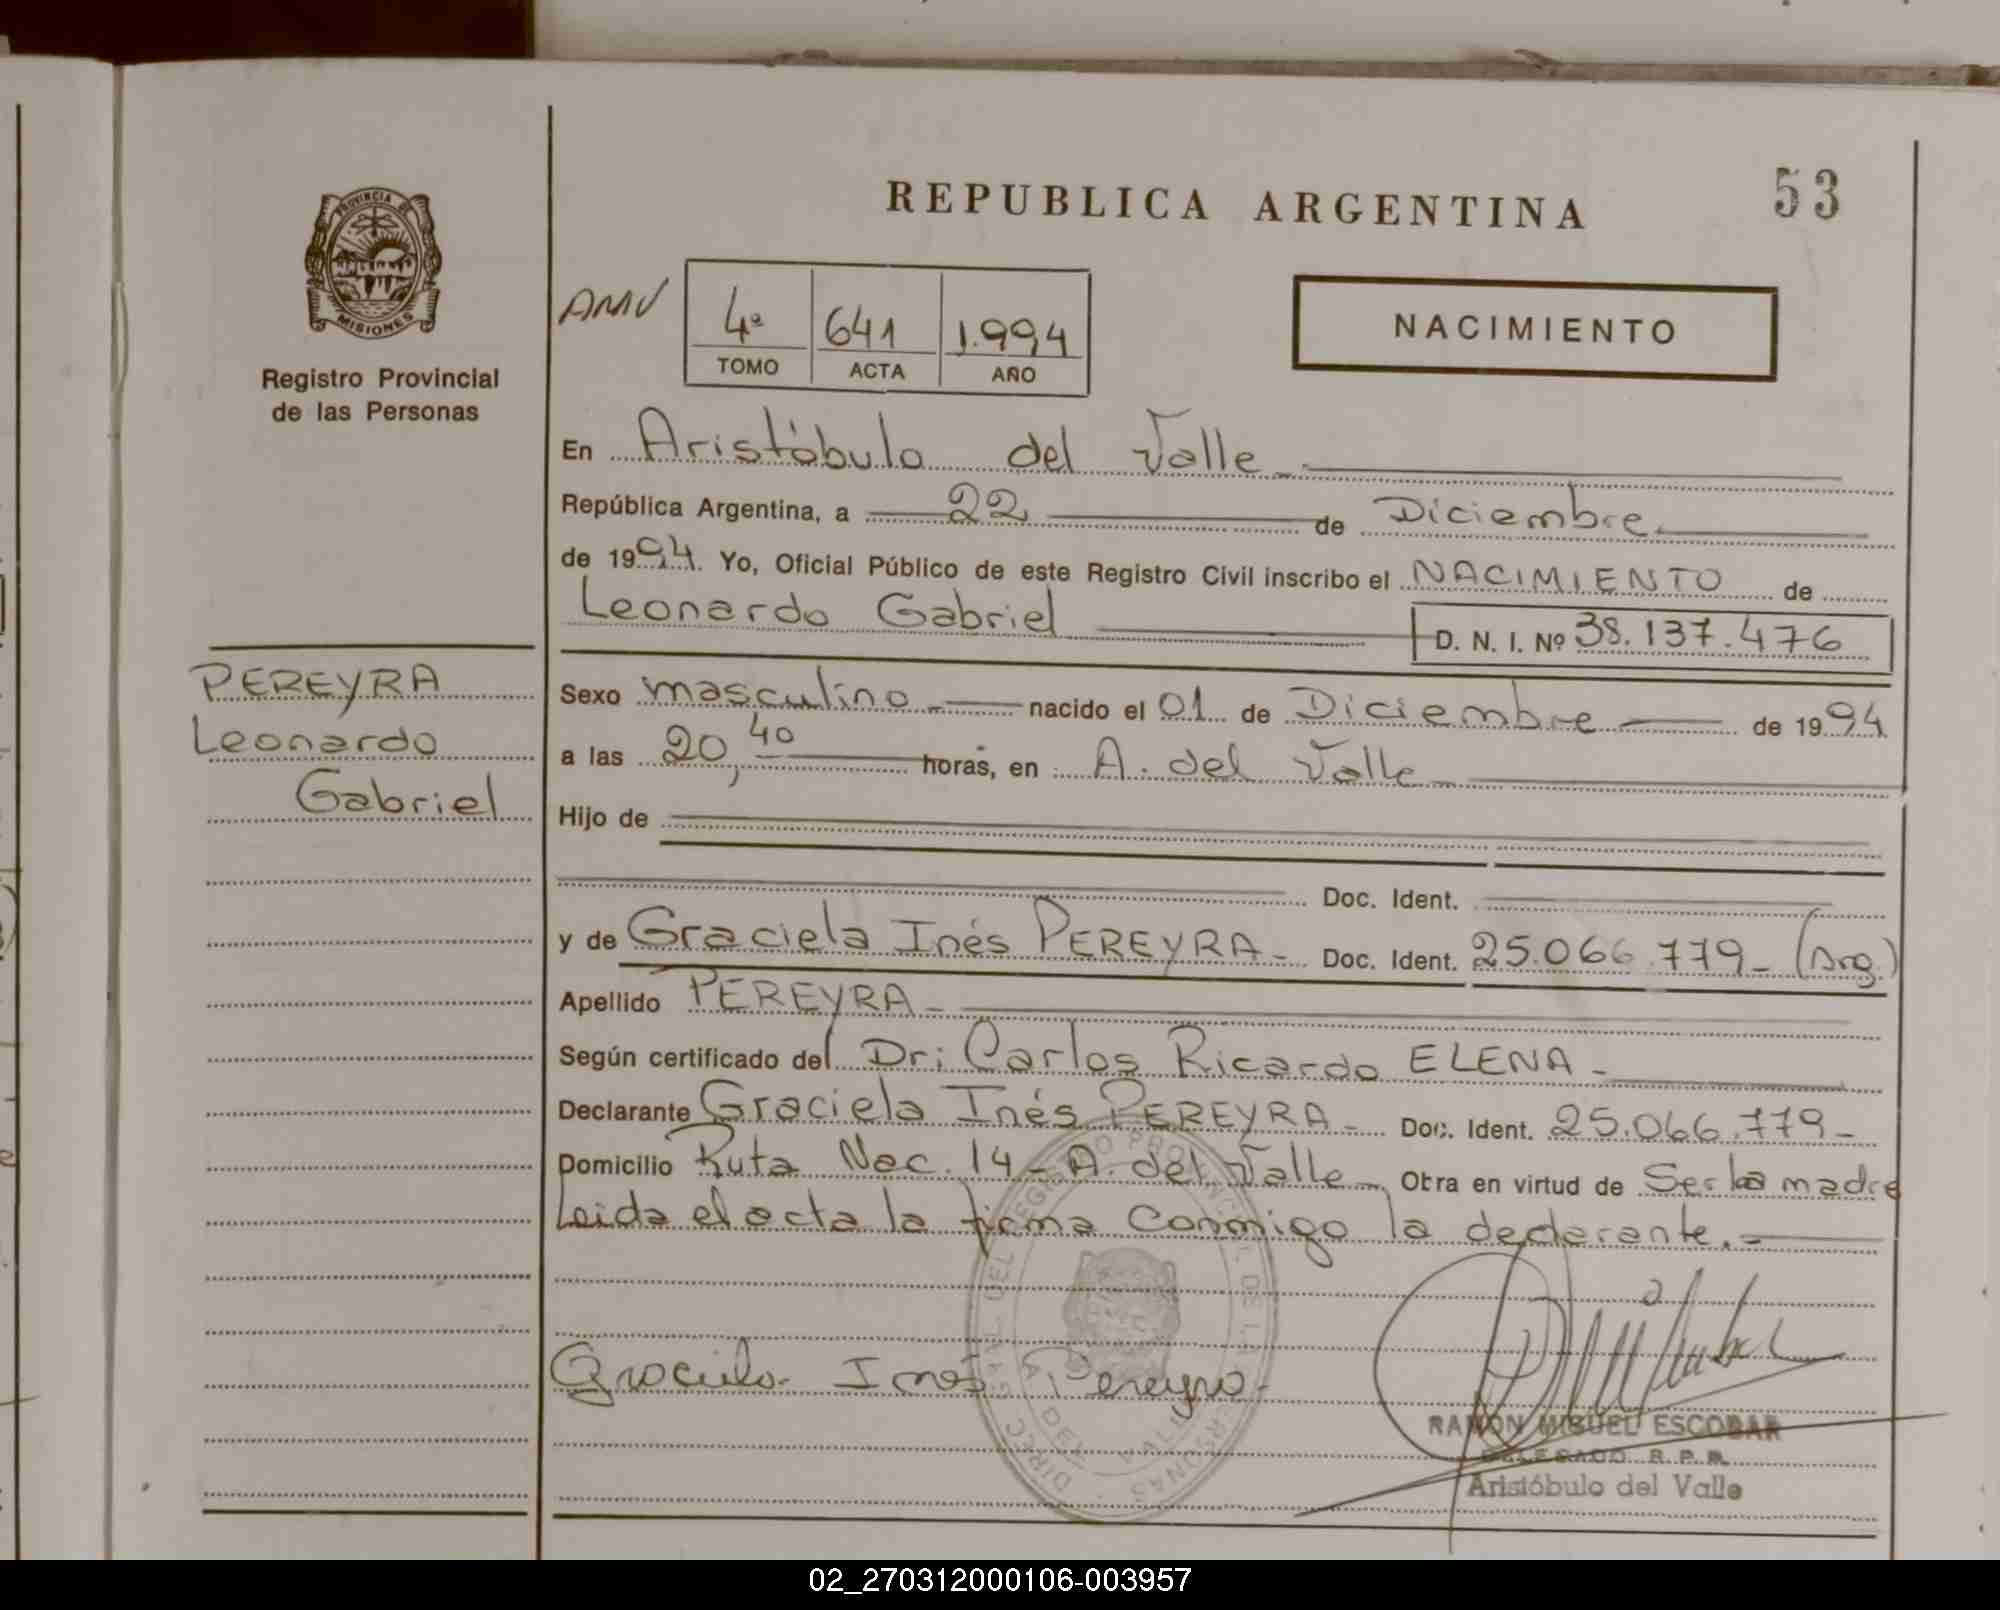 REPUBLICA ARGENTINA
53
PROVINCIA DE
MISIONES
Registro Provincial
de las Personas
AMV
4ª 641 1.994
TOMO ACTA AÑO
NACIMIENTO
En Aristóbulo del Valle.-
República Argentina, a 22 de Diciembre
de 1994. Yo, Oficial Público de este Registro Civil inscribo el NACIMIENTO de
Leonardo Gabriel D. N. I. Nº 38.137.476
PEREYRA
Leonardo
Gabriel
Sexo masculino.- nacido el 01 de Diciembre de 1994
a las 20,40 horas, en A. del Valle
Hijo de
Doc. Ident.
y de Graciela Inés PEREYRA- Doc. Ident. 25.066.779- (Arg.)
Apellido PEREYRA-
Según certificado del Dr: Carlos Ricardo ELENA-
Declarante Graciela Inés PEREYRA- Doc. Ident. 25.066.779-
Domicilio Ruta Nac. 14- A. del Valle- Obra en virtud de Ser la madre
Leida el acta la firma conmigo la declarante.-
Graciela Inés Pereyra-
RAMON MIGUEL ESCOBAR
DELEGADO R. P. P.
Aristóbulo del Valle
02_270312000106-003957